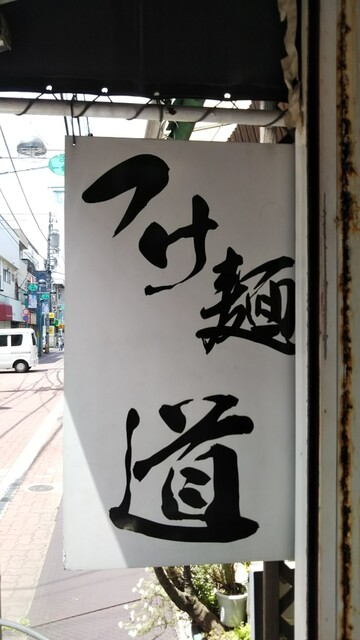 つけ麺
道